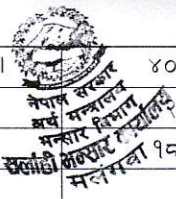 ४०
नेपाल सरकार
अर्थ मन्त्रालय
भन्सार विभाग
सर्लाही भन्सार कार्यालय
मलंगवा